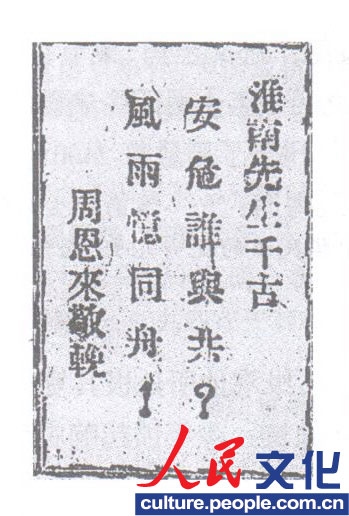 淮南先生千古
安危誰與共?
風雨憶同舟!
周恩來敬輓
人民文化
culture.people.com.cn